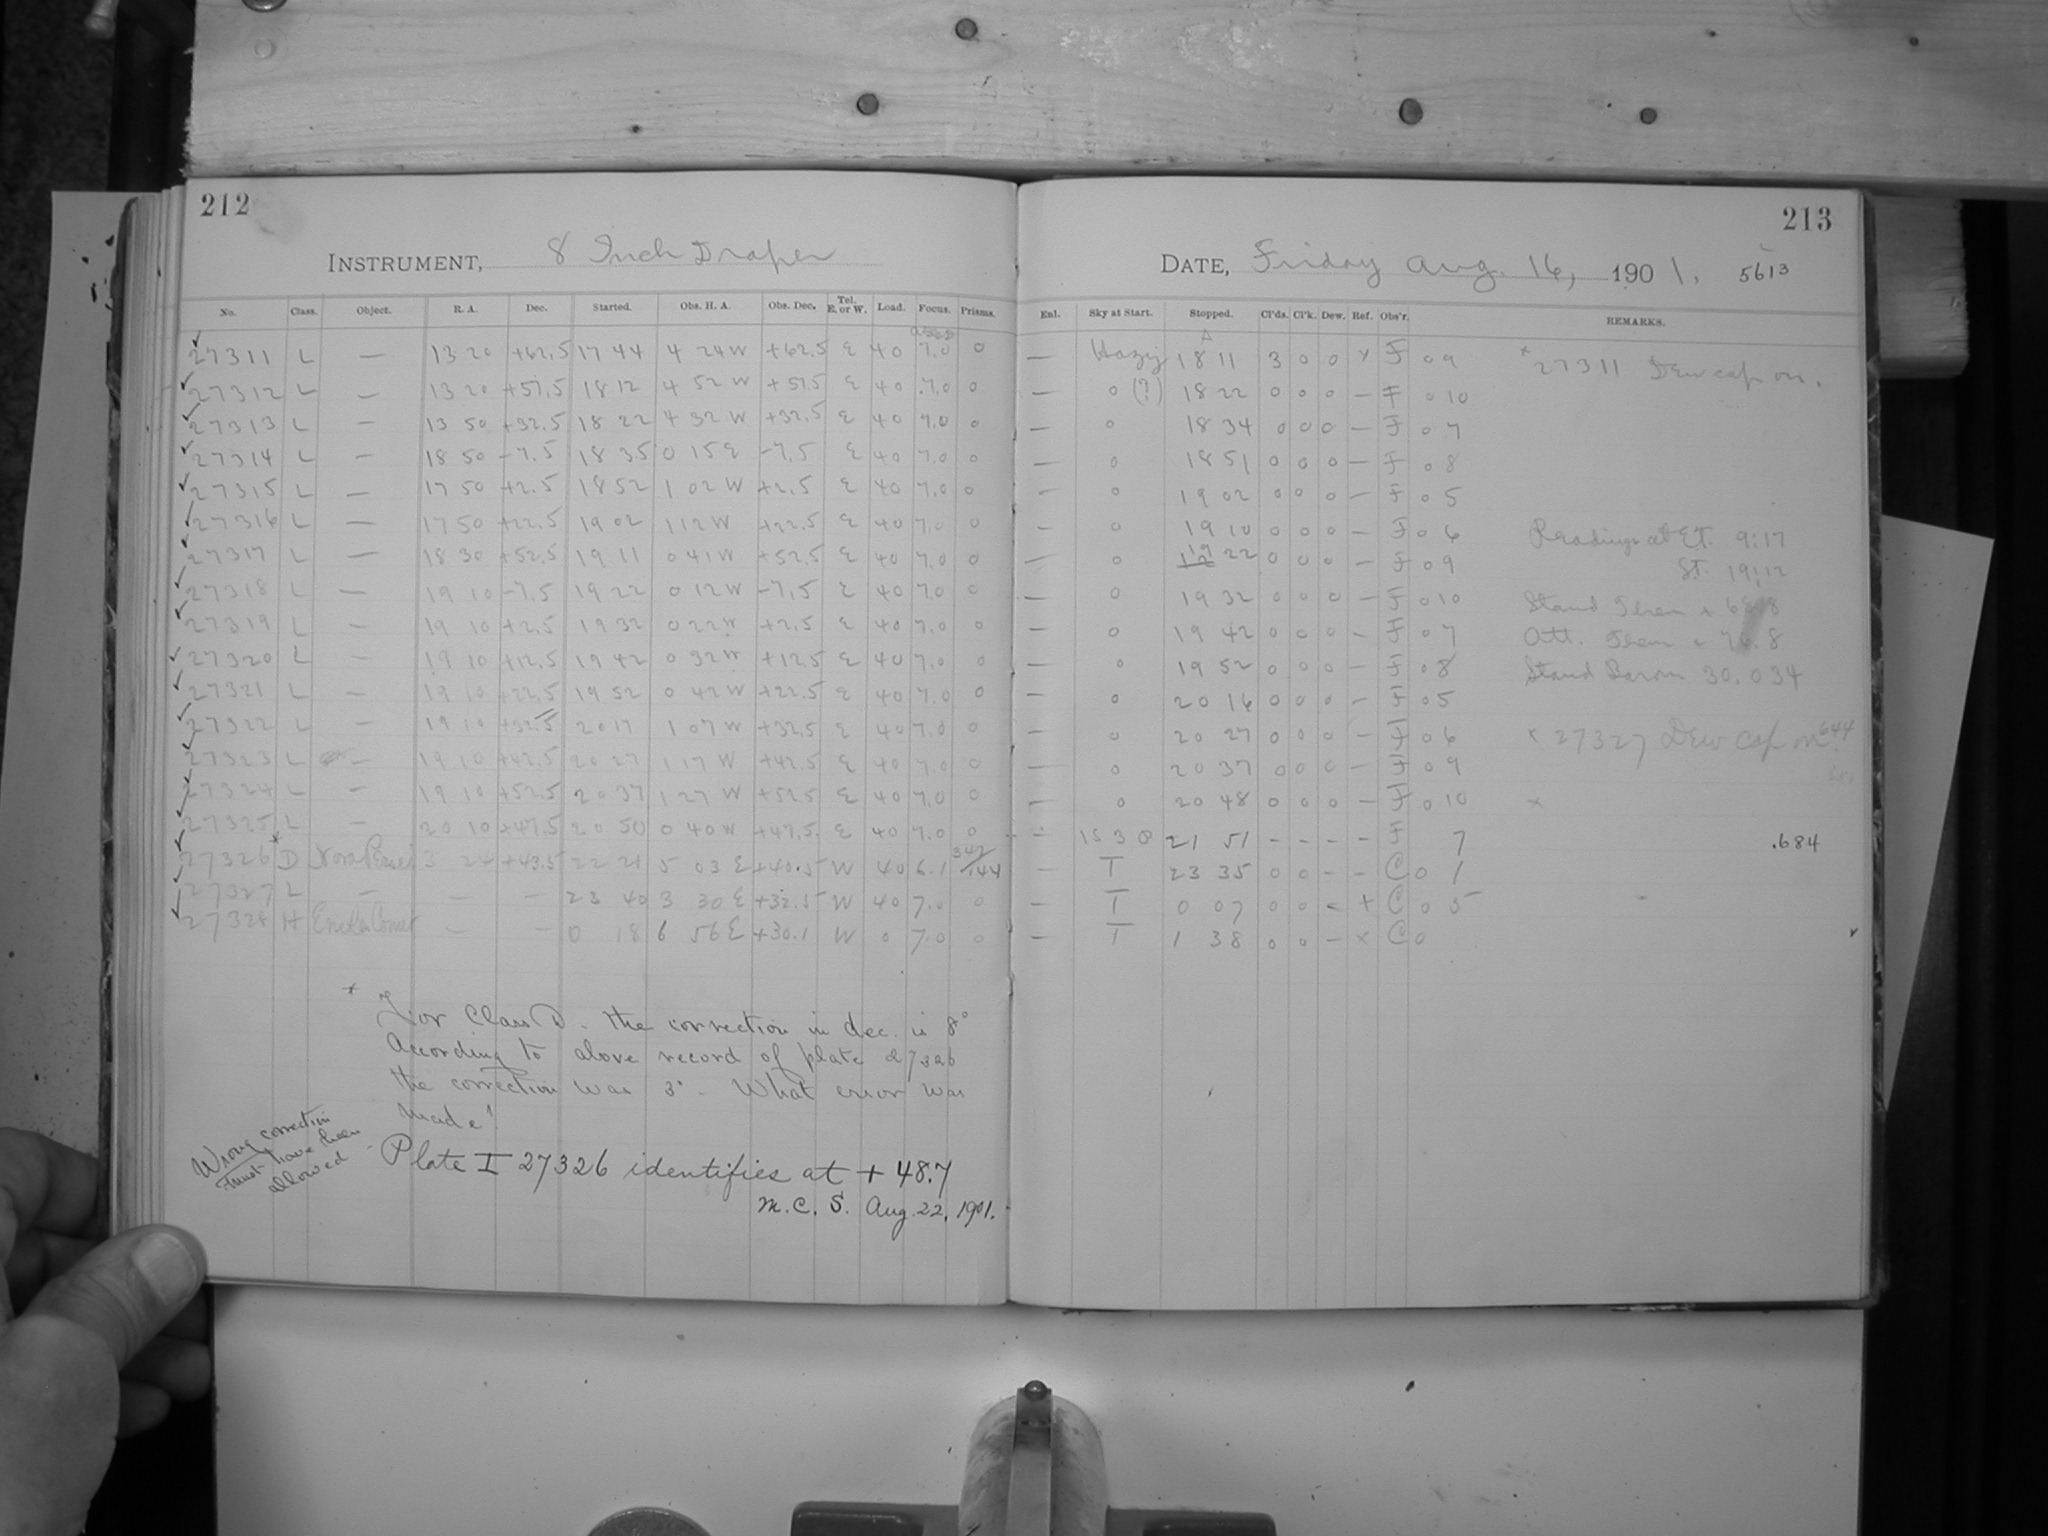 212
INSTRUMENT, 8 Inch Draper
No. Class. Object. R. A. Dec. Started. Obs. H. A. Obs. Dec. Tel. E. or W. Load. Focus. Prisms.
27311 L — 13 20 +62.5 17 44 4 24 W +62.5 E 40 7.0 0
27312 L — 13 20 +57.5 18 12 4 52 W +57.5 E 40 7.0 0
27313 L — 13 50 +32.5 18 22 4 32 W +32.5 E 40 7.0 0
27314 L — 18 50 -7.5 18 35 0 15 E -7.5 E 40 7.0 0
27315 L — 17 50 +2.5 18 52 1 02 W +2.5 E 40 7.0 0
27316 L — 17 50 +22.5 19 02 1 12 W +22.5 E 40 7.0 0
27317 L — 18 30 +52.5 19 11 0 41 W +52.5 E 40 7.0 0
27318 L — 19 10 -7.5 19 22 0 12 W -7.5 E 40 7.0 0
27319 L — 19 10 +2.5 19 32 0 22 W +2.5 E 40 7.0 0
27320 L — 19 10 +12.5 19 42 0 32 W +12.5 E 40 7.0 0
27321 L — 19 10 +22.5 19 52 0 42 W +22.5 E 40 7.0 0
27322 L — 19 10 +32.5 20 17 1 07 W +32.5 E 40 7.0 0
27323 L — 19 10 +42.5 20 27 1 17 W +42.5 E 40 7.0 0
27324 L — 19 10 +52.5 20 37 1 27 W +52.5 E 40 7.0 0
27325 L — 20 10 +47.5 20 50 0 40 W +47.5 E 40 7.0 0
27326 * D Nova Persei 3 24 +43.5 22 21 5 03 E +40.5 W 40 6.1 342/144
27327 L — — — 23 40 3 30 E +32.5 W 40 7.0 0
27328 H Encke Comet — — 0 18 6 56 E +30.1 W 0 7.0 0
* For Class D. the correction in dec. is 8°
According to above record of plate 27326
the correction was 3°. What error was
made?
Wrong correction
must have been
allowed —
Plate I 27326 identifies at + 48.7
M. C. S. Aug. 22, 1901.
213
DATE, Friday Aug. 16, 1901. 5613
Enl. Sky at Start. Stopped. Cl'ds. Cl'k. Dew. Ref. Obs'r. REMARKS.
— Hazy 18 11 3 0 0 x F 0 9 * 27311 Dew cap on.
— 0 (?) 18 22 0 0 0 — F 0 10
— 0 18 34 0 0 0 — F 0 7
— 0 18 51 0 0 0 — F 0 8
— 0 19 02 0 0 0 — F 0 5
— 0 19 10 0 0 0 — F 0 6 Readings at E.T. 9:17
— 0 19 22 0 0 0 — F 0 9 S.T. 19:12
— 0 19 32 0 0 0 — F 0 10 Stand Them +
— 0 19 42 0 0 0 — F 0 7 Att. Them +
— 0 19 52 0 0 0 — F 0 8 Stand Barom 30.034
— 0 20 16 0 0 0 — F 0 5
— 0 20 27 0 0 0 — F 0 6 x 27327 Dew cap on. 644
— 0 20 37 0 0 0 — F 0 9
— 0 20 48 0 0 0 — F 0 10 x
— 21 51 — — — — F 7 .684
— T 23 35 0 0 — — C 0 1
— T 0 07 0 0 — + C 0 5
— T 1 38 0 0 — x C 0